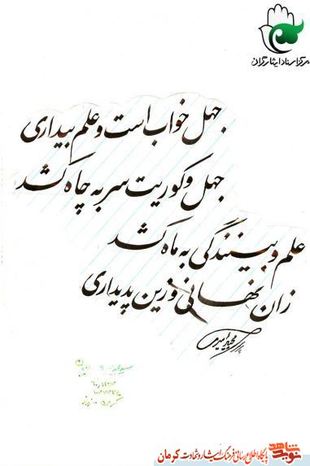 مرکز اسناد ایثارگران
جهل خواب است و علم بیداری
جهل و کوریت سر به چاه کشد
علم و بینندگی به ماه کشد
زان نهانی وزین پدیداری
نوید شاهد
پایگاه اطلاع رسانی فرهنگ ایثار و شهادت کرمان